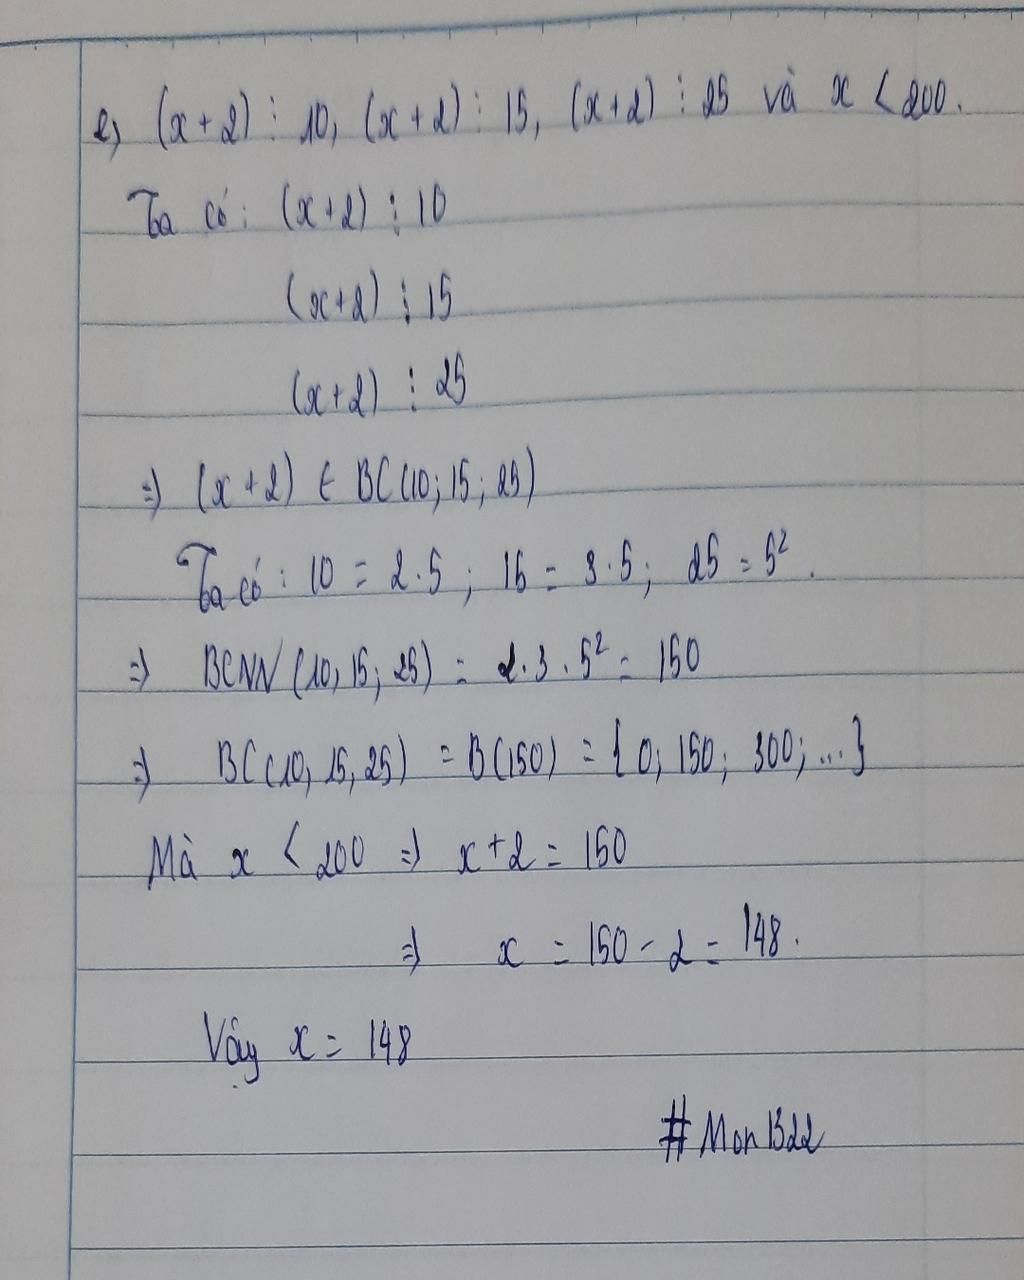 e, (x+2) ⋮ 10, (x+2) ⋮ 15, (x+2) ⋮ 25 và x < 200.
Ta có: (x+2) ⋮ 10
(x+2) ⋮ 15
(x+2) ⋮ 25
=> (x+2) ∈ BC(10; 15; 25)
Ta có: 10 = 2.5; 15 = 3.5; 25 = 5².
=> BCNN (10, 15; 25) = 2.3.5² = 150
=> BC(10, 15, 25) = B(150) = {0; 150; 300; ...}
Mà x < 200 => x+2 = 150
=> x = 150 - 2 = 148.
Vậy x = 148
#MonB22